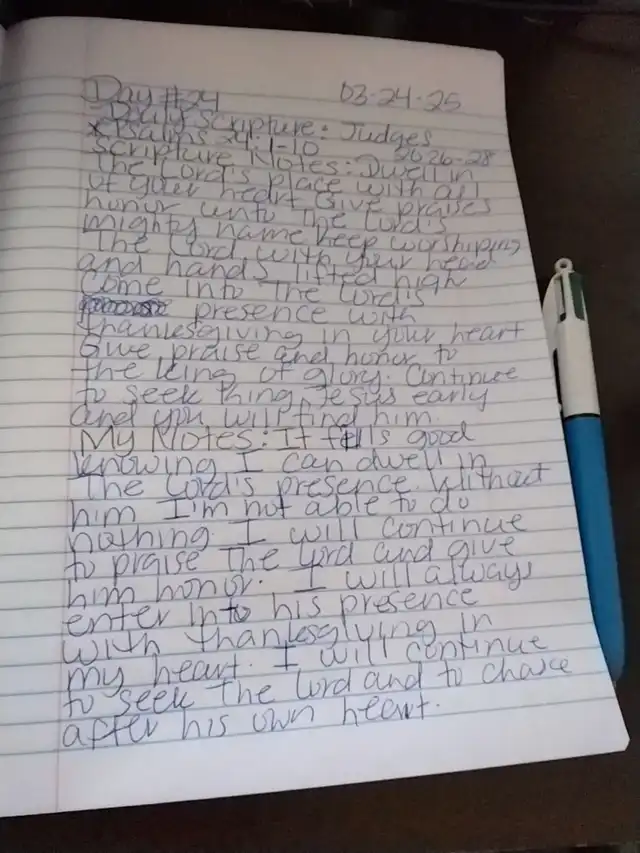 Day #24 03-24-25
Daily Scripture: Judges
Psalms 84:1-10 20:26-28
Scripture Notes: Dwell in
The Lord's place with all
of your heart Give praises
honor unto The Lord's
mighty name keep worshipping
The Lord with your head
and hands lifted high
Come into The Lord's
presence with
thanksgiving in your heart
Give praise and honor to
the King of glory. Continue
to seek thing Jesus early
and you will find him.
My Notes: It feels good
knowing I can dwell in
The Lord's presence. Without
him I'm not able to do
nothing. I will continue
to praise The Lord and give
him honor. I will always
enter into his presence
with thanksgiving in
my heart. I will continue
to seek The Lord and to chase
after his own heart.